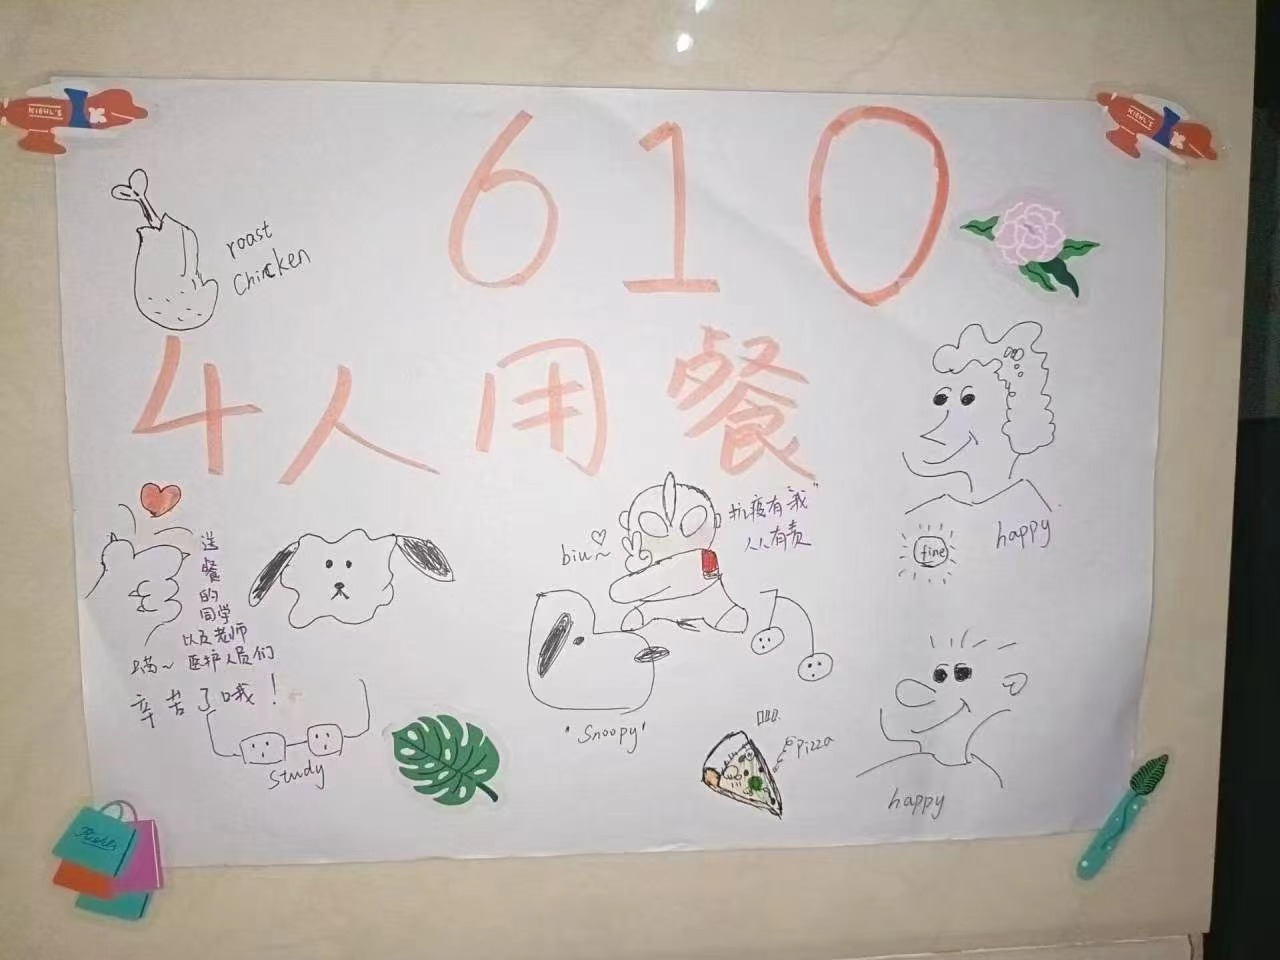 KIEHL'S
KIEHL'S
610
roast
Chincken
4人用餐
送
餐
的
同学
以及老师
喵~ 医护人员们
辛苦了哦!
biu~
抗疫有"我"
人人有责
happy
fine
"Snoopy"
Study
pizza
happy
Kiehl's